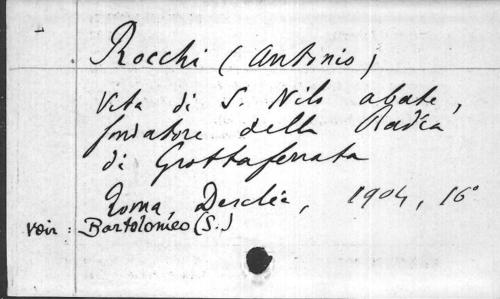 Rocchi (Antonio)
Vita di S. Nilo abate,
fondatore della Badia
di Grottaferrata
Roma, Desclée, 1904, 16°
Voir : Bartolomeo (S.)